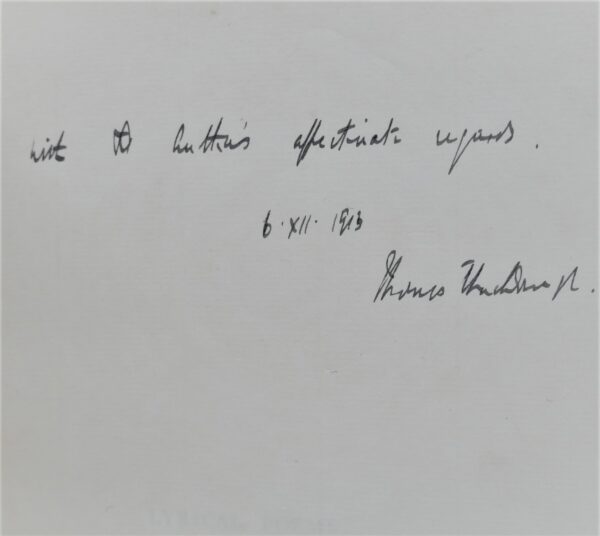 with the author's affectionate regards.
6·XII·1913
Thomas MacDonagh.
LYRICAL POEMS